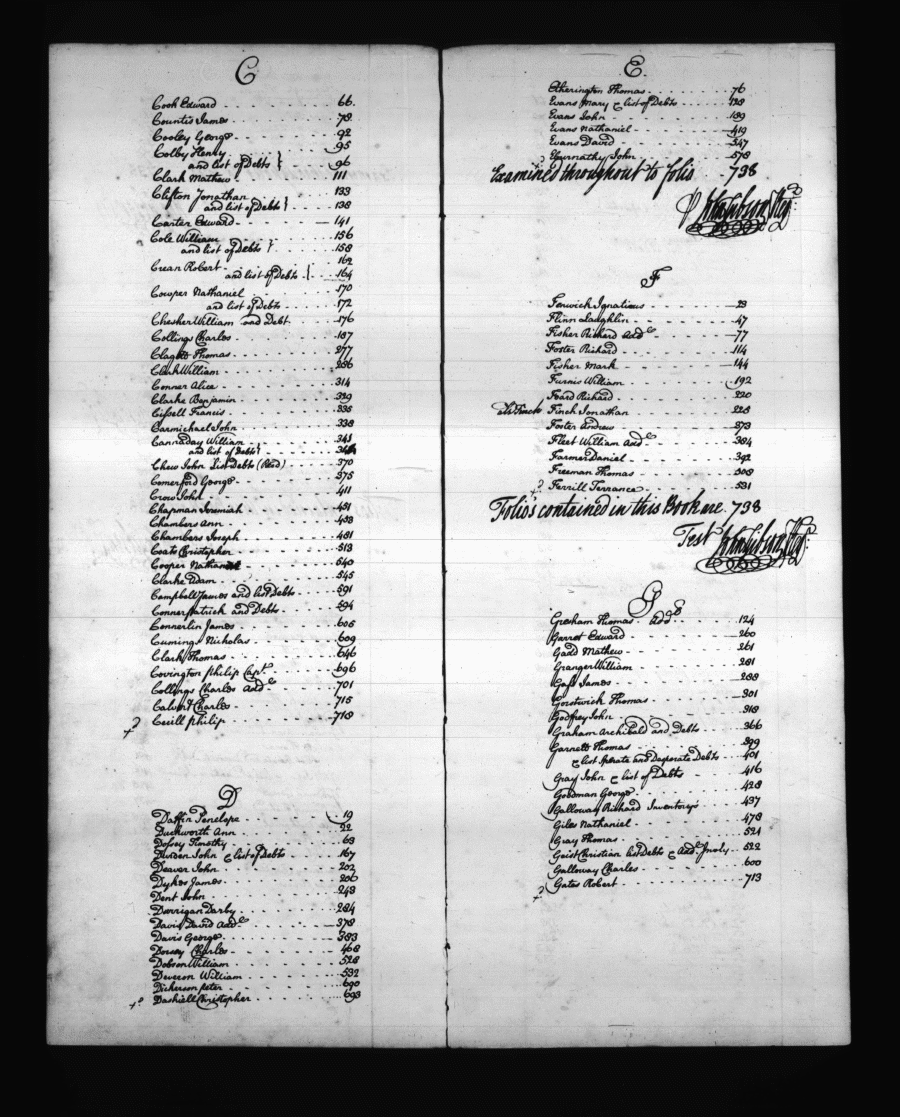 C
Cook Edward 66.
Countis James 78
Cooley George 92
Colby Henry 95
and list of Debts } 96
Clark Mathew 111
Clifton Jonathan 133
and list of Debts } 138
Carter Edward 141
Cole William 156
and list of Debts } 158
Crean Robert 162
and list of Debts } 164
Cowper Nathaniel 170
and list of Debts 172
Chesher William and Debt 176
Collings Charles 187
Clagett Thomas 277
Clark William 286
Conner Alice 314
Clarke Benjamin 329
Cissell Francis 335
Carmichael John 338
Cannaday William 341
and list of Debts }
Chew John List Debts 370
Comerford George 375
Crow John 411
Chapman Jeremiah 451
Chambers Ann 453
Chambers Joseph 481
Coats Christopher 513
Cooper Nathaniel 540
Clarke Adam 545
Campbell James and list Debts 591
Conner patrick and Debts 594
Connerlin James 605
Cumings Nicholas 609
Clark Thomas 646
Covington philip Capt. 696
Collings Charles Add.e 701
Calvert Charles 715
Cecill philip 718
D
Daffin Penelope 19
Duckworth Ann 22
Dossey Timothy 63
Durden John & list of Debts 167
Deaver John 202
Dykes James 206
Dent John 243
Dorrigan Darby 284
Davis David Add.e 378
Davis George 383
Dorsey Charles 468
Dobson William 528
Deveron William 532
Dickerson peter 690
Dashiell Christopher 693
E.
Etherington Thomas 76
Evans Mary & list of Debts 128
Evans John 189
Evans Nathaniel 419
Evans David 547
Eburnathy John 578
Examined throughout to folio 738
F
Fenwick Ignatious 23
Flinn Laughlin 47
Fisher Richard Add.e 77
Foster Richard 114
Fisher Mark 144
Furnis William 192
Foard Richard 220
Finch Jonathan 228
Foster Andrew 273
Fleet William Add.e 384
Farmer Daniel 392
Freeman Thomas 508
Ferrill Terrance 531
Folio's contained in this Book are 738
Test
G
Gresham Thomas Add.e 124
Garret Edward 260
Gadd Mathew 261
Granger William 281
James 288
Gostwick Thomas 301
Godfrey John 318
Graham Archibald and Debts 366
Garnett Thomas 399
& list Sperate and Desperate Debts 401
Gray John & list of Debts 416
Goodman George 428
Galloway Richard Inventorys 437
Giles Nathaniel 478
Gray Thomas 521
Geist Christian list Debts & Add.e 522
Galloway Charles 600
Gates Robert 713